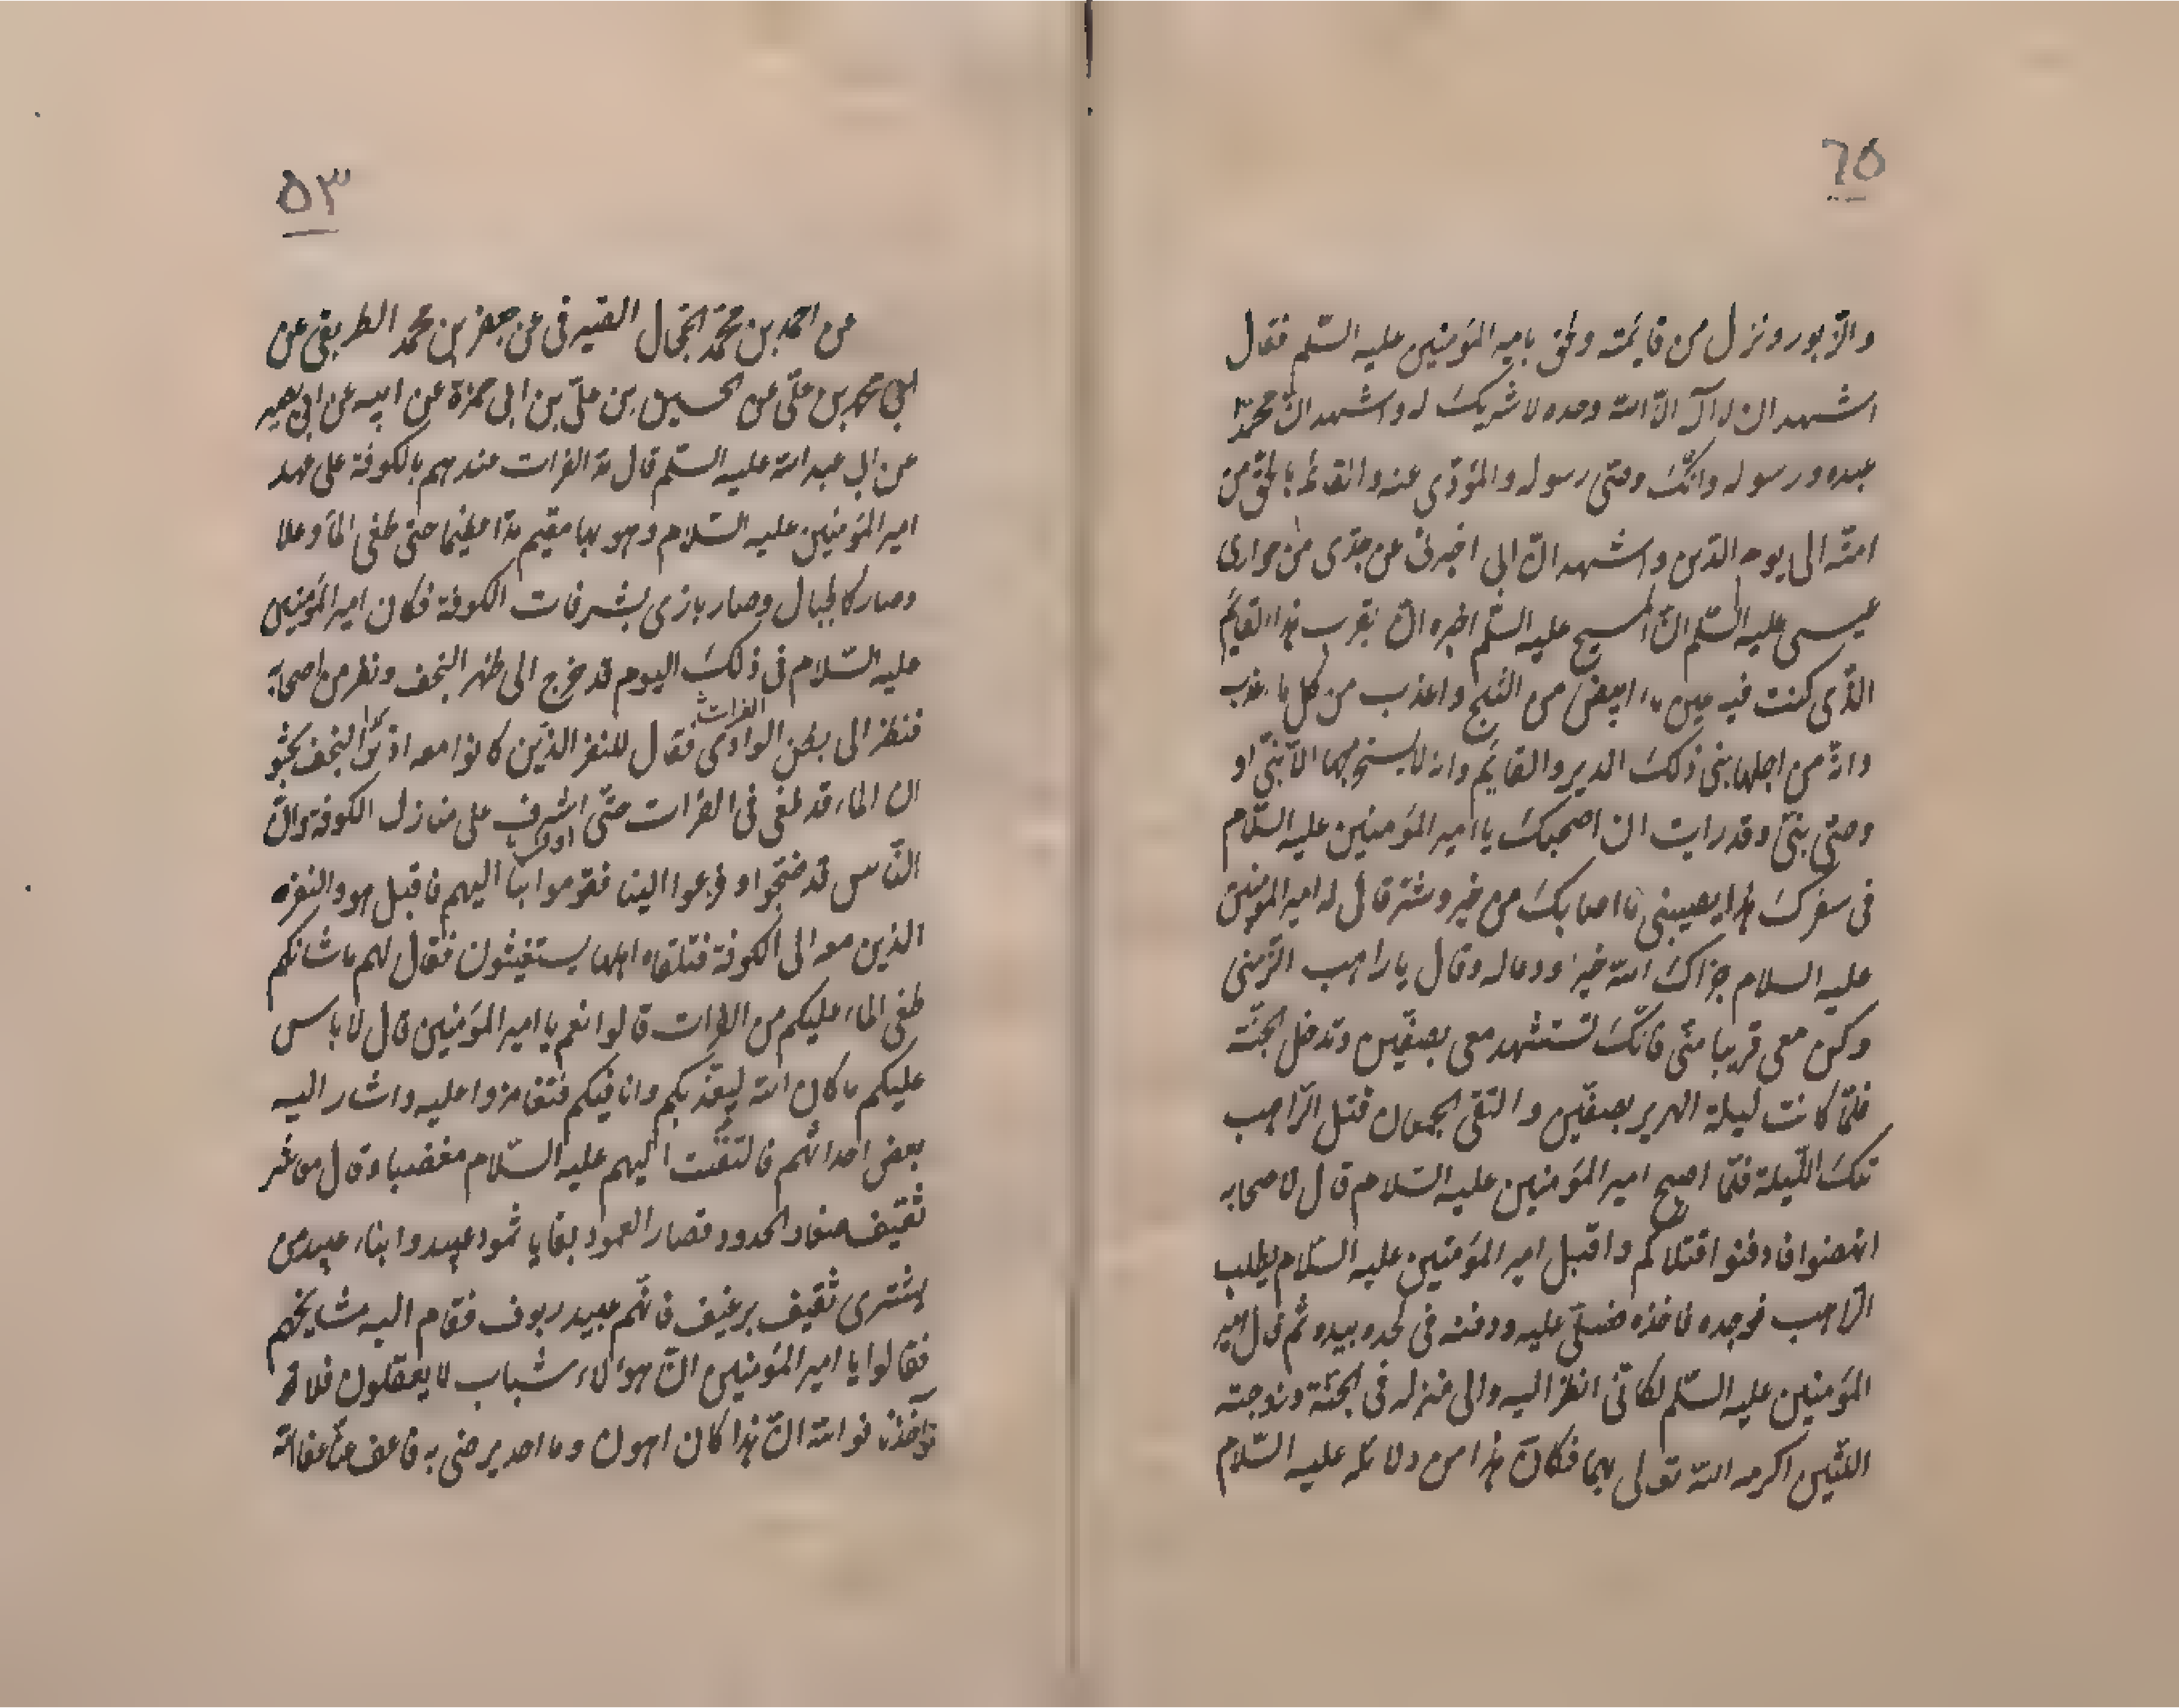 ٦٥
والزبور ونزل من قايمته ولحق بامير المؤمنين عليه السلم فقال
اشهد ان لا اله الا الله وحده لا شريك له واشهد ان محمدا
عبده ورسوله وانك وصي رسوله والمؤدى عنه والقائم بالحق من
امته الى يوم الدين واشهد ان ابي اخبرني عن جدى من حوارى
عيسى عليه السلم ان المسيح عليه السلم اخبره ان بقرب هذا القايم
الذى كنت فيه عين ماء ابيض من الثلج واعذب من كل ماء عذب
وانه من اجلها بنى ذلك الدير والقايم وانه لا يستخرجها الا نبي او
وصى نبي وقد رايت ان اصحبك يا امير المؤمنين عليه السلام
فى سفرك هذا يصيبنى ما اصابك من خير وشر قال له امير المؤمنين
عليه السلام جزاك الله خيرا ودعا له وقال يا راهب الزمنى
وكن معى قريبا منى فانك تستشهد معى بصفين وتدخل الجنة
فلما كانت ليلة الهرير بصفين والتقى الجمعان قتل الراهب
تلك الليلة فلما اصبح امير المؤمنين عليه السلام قال لاصحابه
انهضوا فادفنوا قتلاكم واقبل امير المؤمنين عليه السلام يطلب
الراهب فوجده فاخذه فصلى عليه ودفنه فى لحده بيده ثم قال امير
المؤمنين عليه السلم لكانى انظر اليه والى منزله فى الجنة وزوجته
اللتين اكرمه الله تعالى بهما فكان هذا من دلائله عليه السلام
٥٣
عن احمد بن محمد الجمال الصيرفى عن جعفر بن محمد عن
ابي محمد بن على عن الحسين بن على بن ابى حمزة عن ابيه عن ابي بصير
عن ابى عبد الله عليه السلم قال مد الفرات عندهم بالكوفة على عهد
امير المؤمنين عليه السلام وهو بها مقيم مدا عظيما حتى طغى الماء وعلا
وصار كالجبال وصار بازى بشرفات الكوفة فكان امير المؤمنين
عليه السلام فى ذلك اليوم قد خرج الى ظهر النجف ونظر من اصحابه
فنظر الى بطن الوادى فقال للنفر الذين كانوا معه النجف
ان الماء قد طغى فى الفرات حتى اشرف على منازل الكوفة وان
الناس قد ضجوا وفزعوا الينا فقوموا بنا اليهم فاقبل هو والنفر
الذين معه الى الكوفة فتلقاه اهلها يستغيثون فقال لهم ما شانكم
طغى الماء عليكم من الفرات قالوا نعم يا امير المؤمنين قال لا باس
عليكم ما كان الله ليعذبكم وانا فيكم فتغامزوا عليه واشار اليه
بعض احداثهم فالتفت اليهم عليه السلام مغضبا وقال
ثقيف صغار الخدود قصار العمود بقايا ثمود عبيد وابناء عبيد من
يشترى ثقيف برغيف فانهم عبيد فقام اليه مشايخهم
فقالوا يا امير المؤمنين ان هؤلاء شباب لا يعقلون فلا
تواخذنا فوالله ان هذا كان اهون وما احد يرضى به فاعف عنا عفا الله